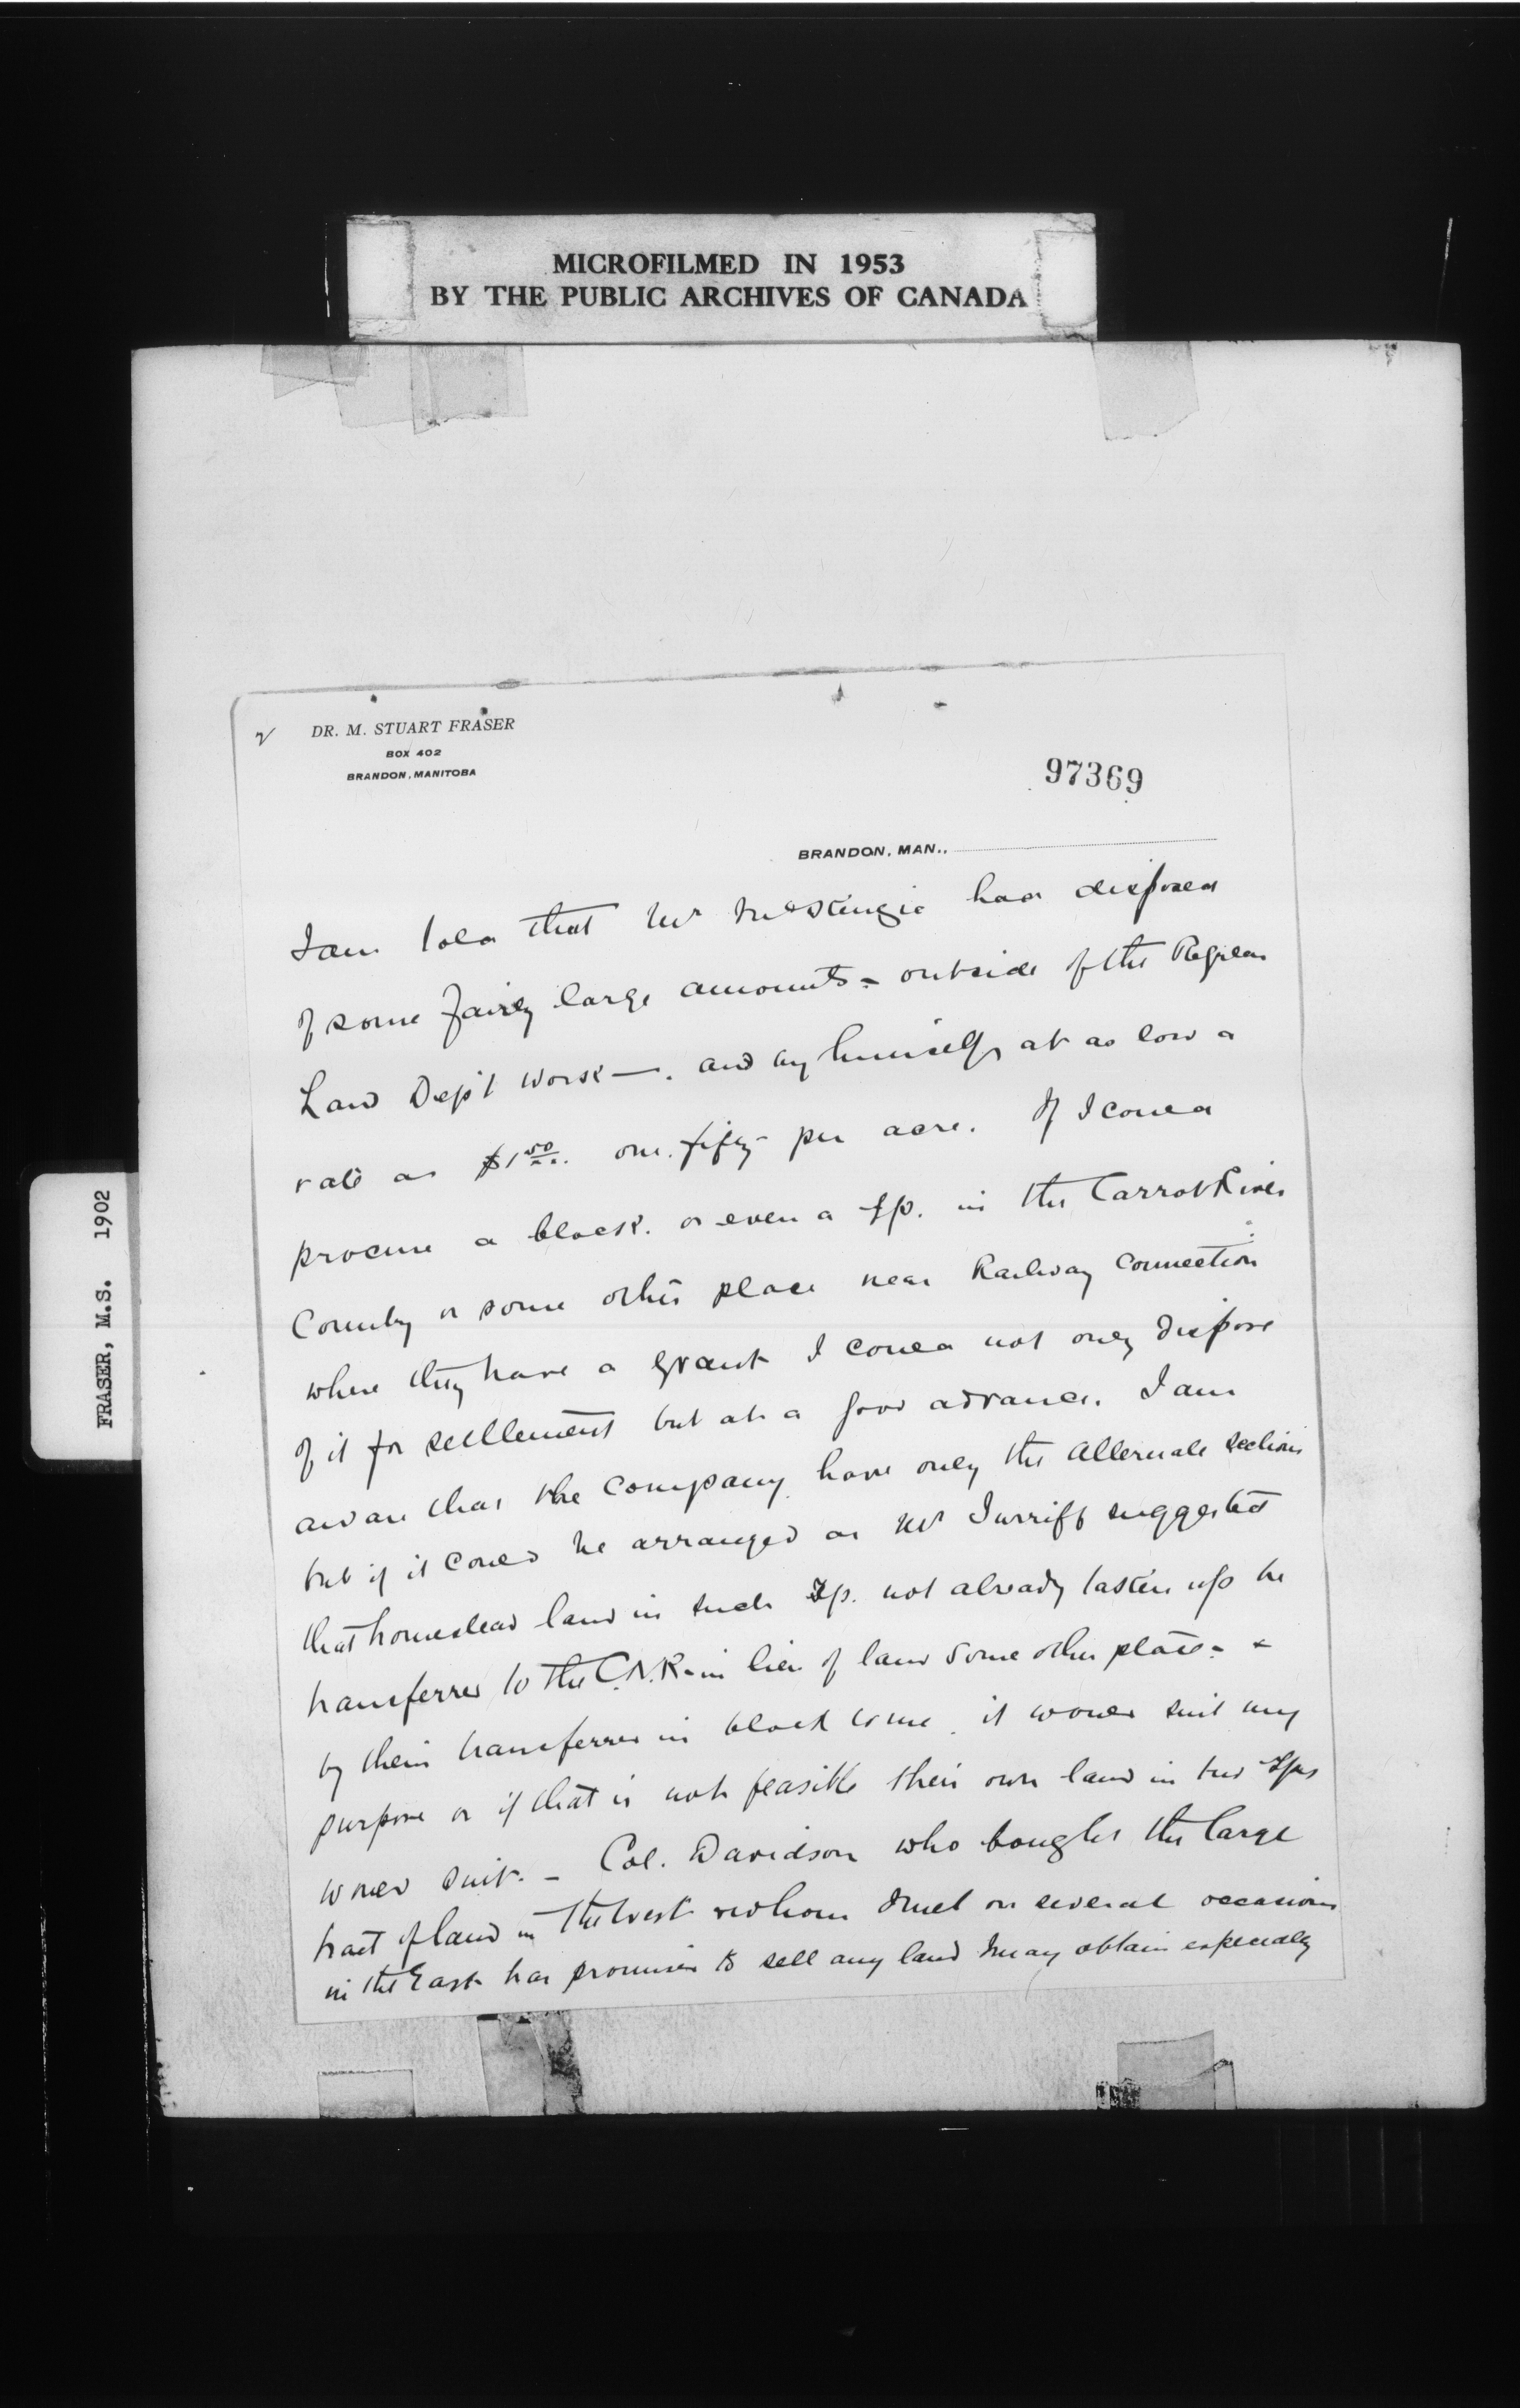 MICROFILMED IN 1953
BY THE PUBLIC ARCHIVES OF CANADA
FRASER, M.S. 1902
2
DR. M. STUART FRASER
BOX 402
BRANDON, MANITOBA
97369
BRANDON, MAN.,
I am told that Mr McKenzie has disposed
of some fairly large amounts - outside of the Regular
Land Dep't work —. and by himself, at as low a
rate as $1.50. one. fifty per acre. If I could
procure a block. or even a Tp. in the Carrot River
Country or some other place near Railway connection
where they have a grant I could not only dispose
of it for settlement but at a good advance. I am
aware that the company have only the alternate sections
but if it could be arranged as Mr Turriff suggested
that homestead land in such Tp. not already taken up be
transferred to the C.N.R. in lieu of land some other place - &
by them transferred in block to me, it would suit my
purpose or if that is not feasible their own land in two Tps
would suit. - Col. Davidson who bought the large
tract of land in the West & whom I met on several occasions
in the East has promised to sell any land I may obtain especially